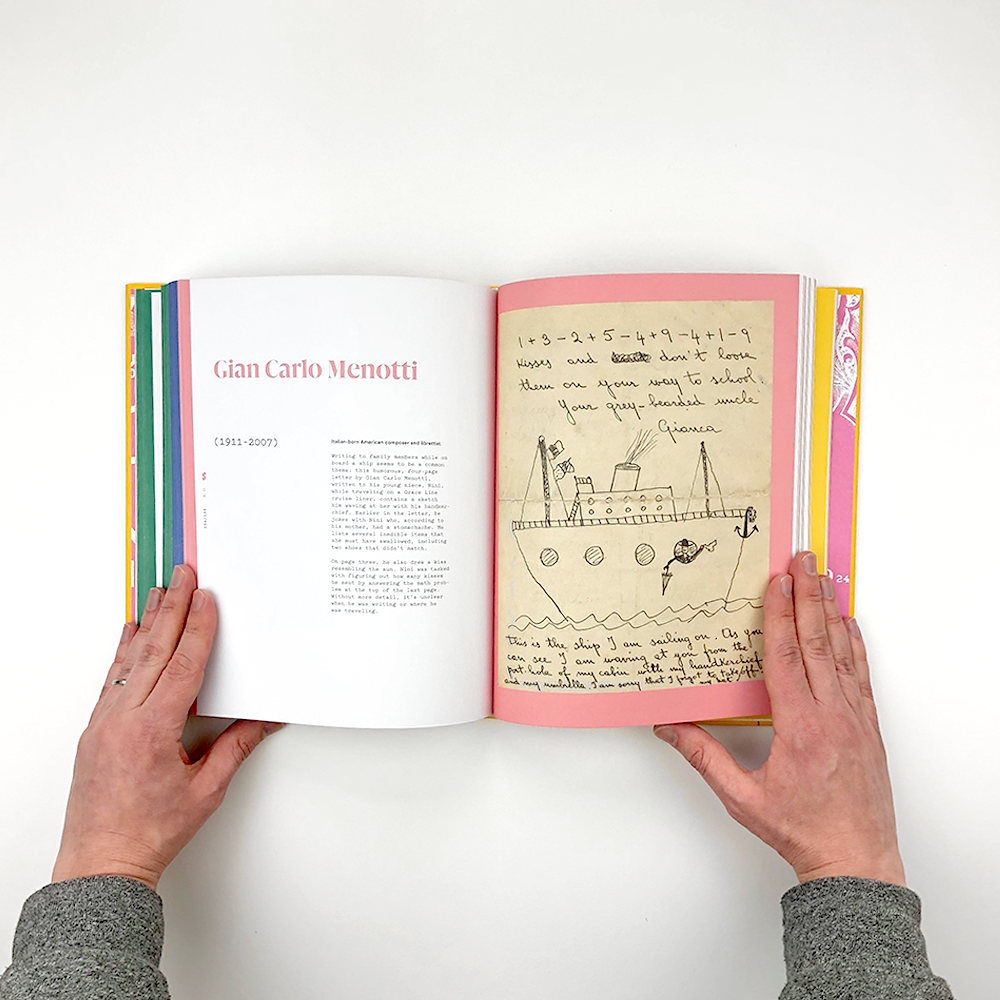 Gian Carlo Menotti
(1911-2007)
Italian-born American composer and librettist
Writing to family members while on
board a ship seems to be a common
theme: this humorous, four-page
letter by Gian Carlo Menotti,
written to his young niece, Nini,
while traveling on a Grace Line
cruise liner, contains a sketch
his waving at her with his handker-
chief. Earlier in the letter, he
jokes with Nini who, according to
his mother, had a stomachache. He
lists several inedible items that
she must have swallowed, including
two shoes that didn't match.
On page three, he also drew a kiss
resembling the sun. Nini was tasked
with figuring out how many kisses
he sent by answering the math prob-
lem at the top of the last page.
Without more detail, it's unclear
when he was writing or where he
was traveling.
1+3-2+5-4+9-4+1-9
Kisses and don't loose
them on your way to school.
Your grey-bearded uncle
Gianca
This is the ship I am sailing on. As you
can see I am waving at you from the
port-hole of my cabin with my handkerchief
and my umbrella. I am sorry that I forgot to take off
my hat
24